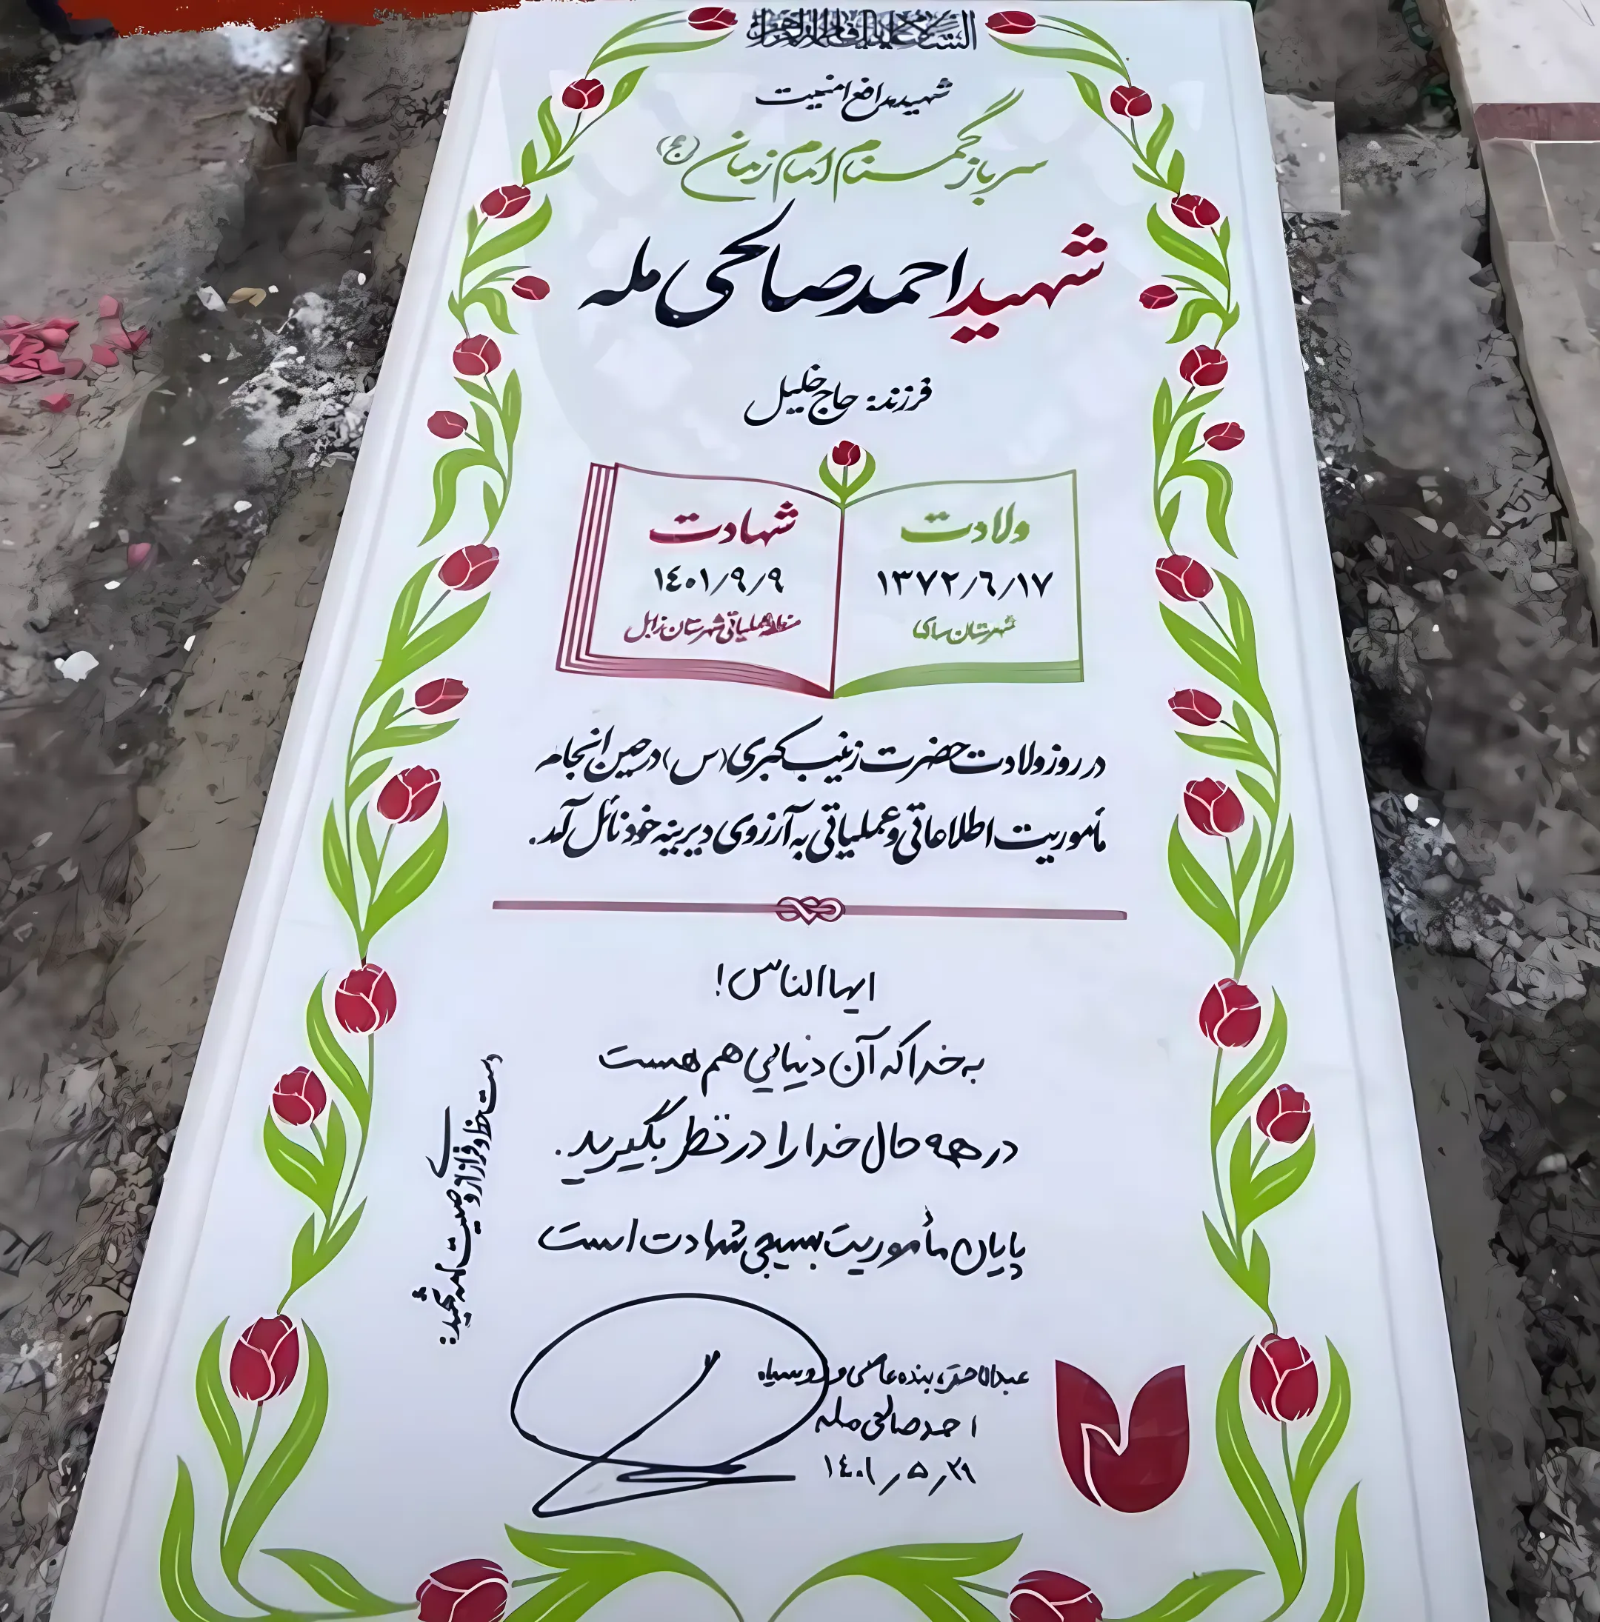 السلام علیک یا فاطمة الزهراء
شهید مدافع امنیت
سرباز گمنام امام زمان (عج)
شهید احمد صالحی مله
فرزند: حاج خلیل
ولادت
۱۳۷۲/۶/۱۷
شهرستان
شهادت
۱۴۰۱/۹/۹
منطقه عملیاتی شهرستان زابل
در روز ولادت حضرت زینب کبری (س) در حین انجام
مأموریت اطلاعاتی و عملیاتی به آرزوی دیرینه خود نائل آمد.
ایها الناس!
به خدا که آن دنیایی هم هست
در همه حال خدا را در نظر بگیرید.
پایان مأموریت بسیجی شهادت است
دست خط و فرازی از وصیت نامه شهید:
عبدالاحقر، بنده عاصی و روسیاه
احمد صالحی مله
۱۴۰۱/۵/۲۹